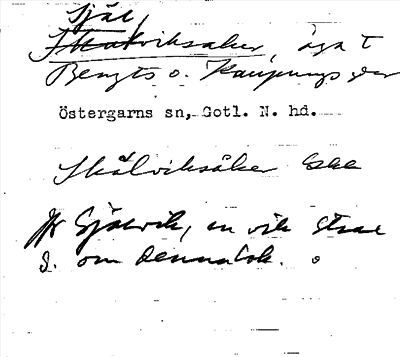 Själ
Skälviksaker, äga t
Bengts o. Kaupungs
Östergarns sn, Gotl. N. hd.
Skälviksåker
Jfr Sjalvik, en vik strax
S. om denna lok.